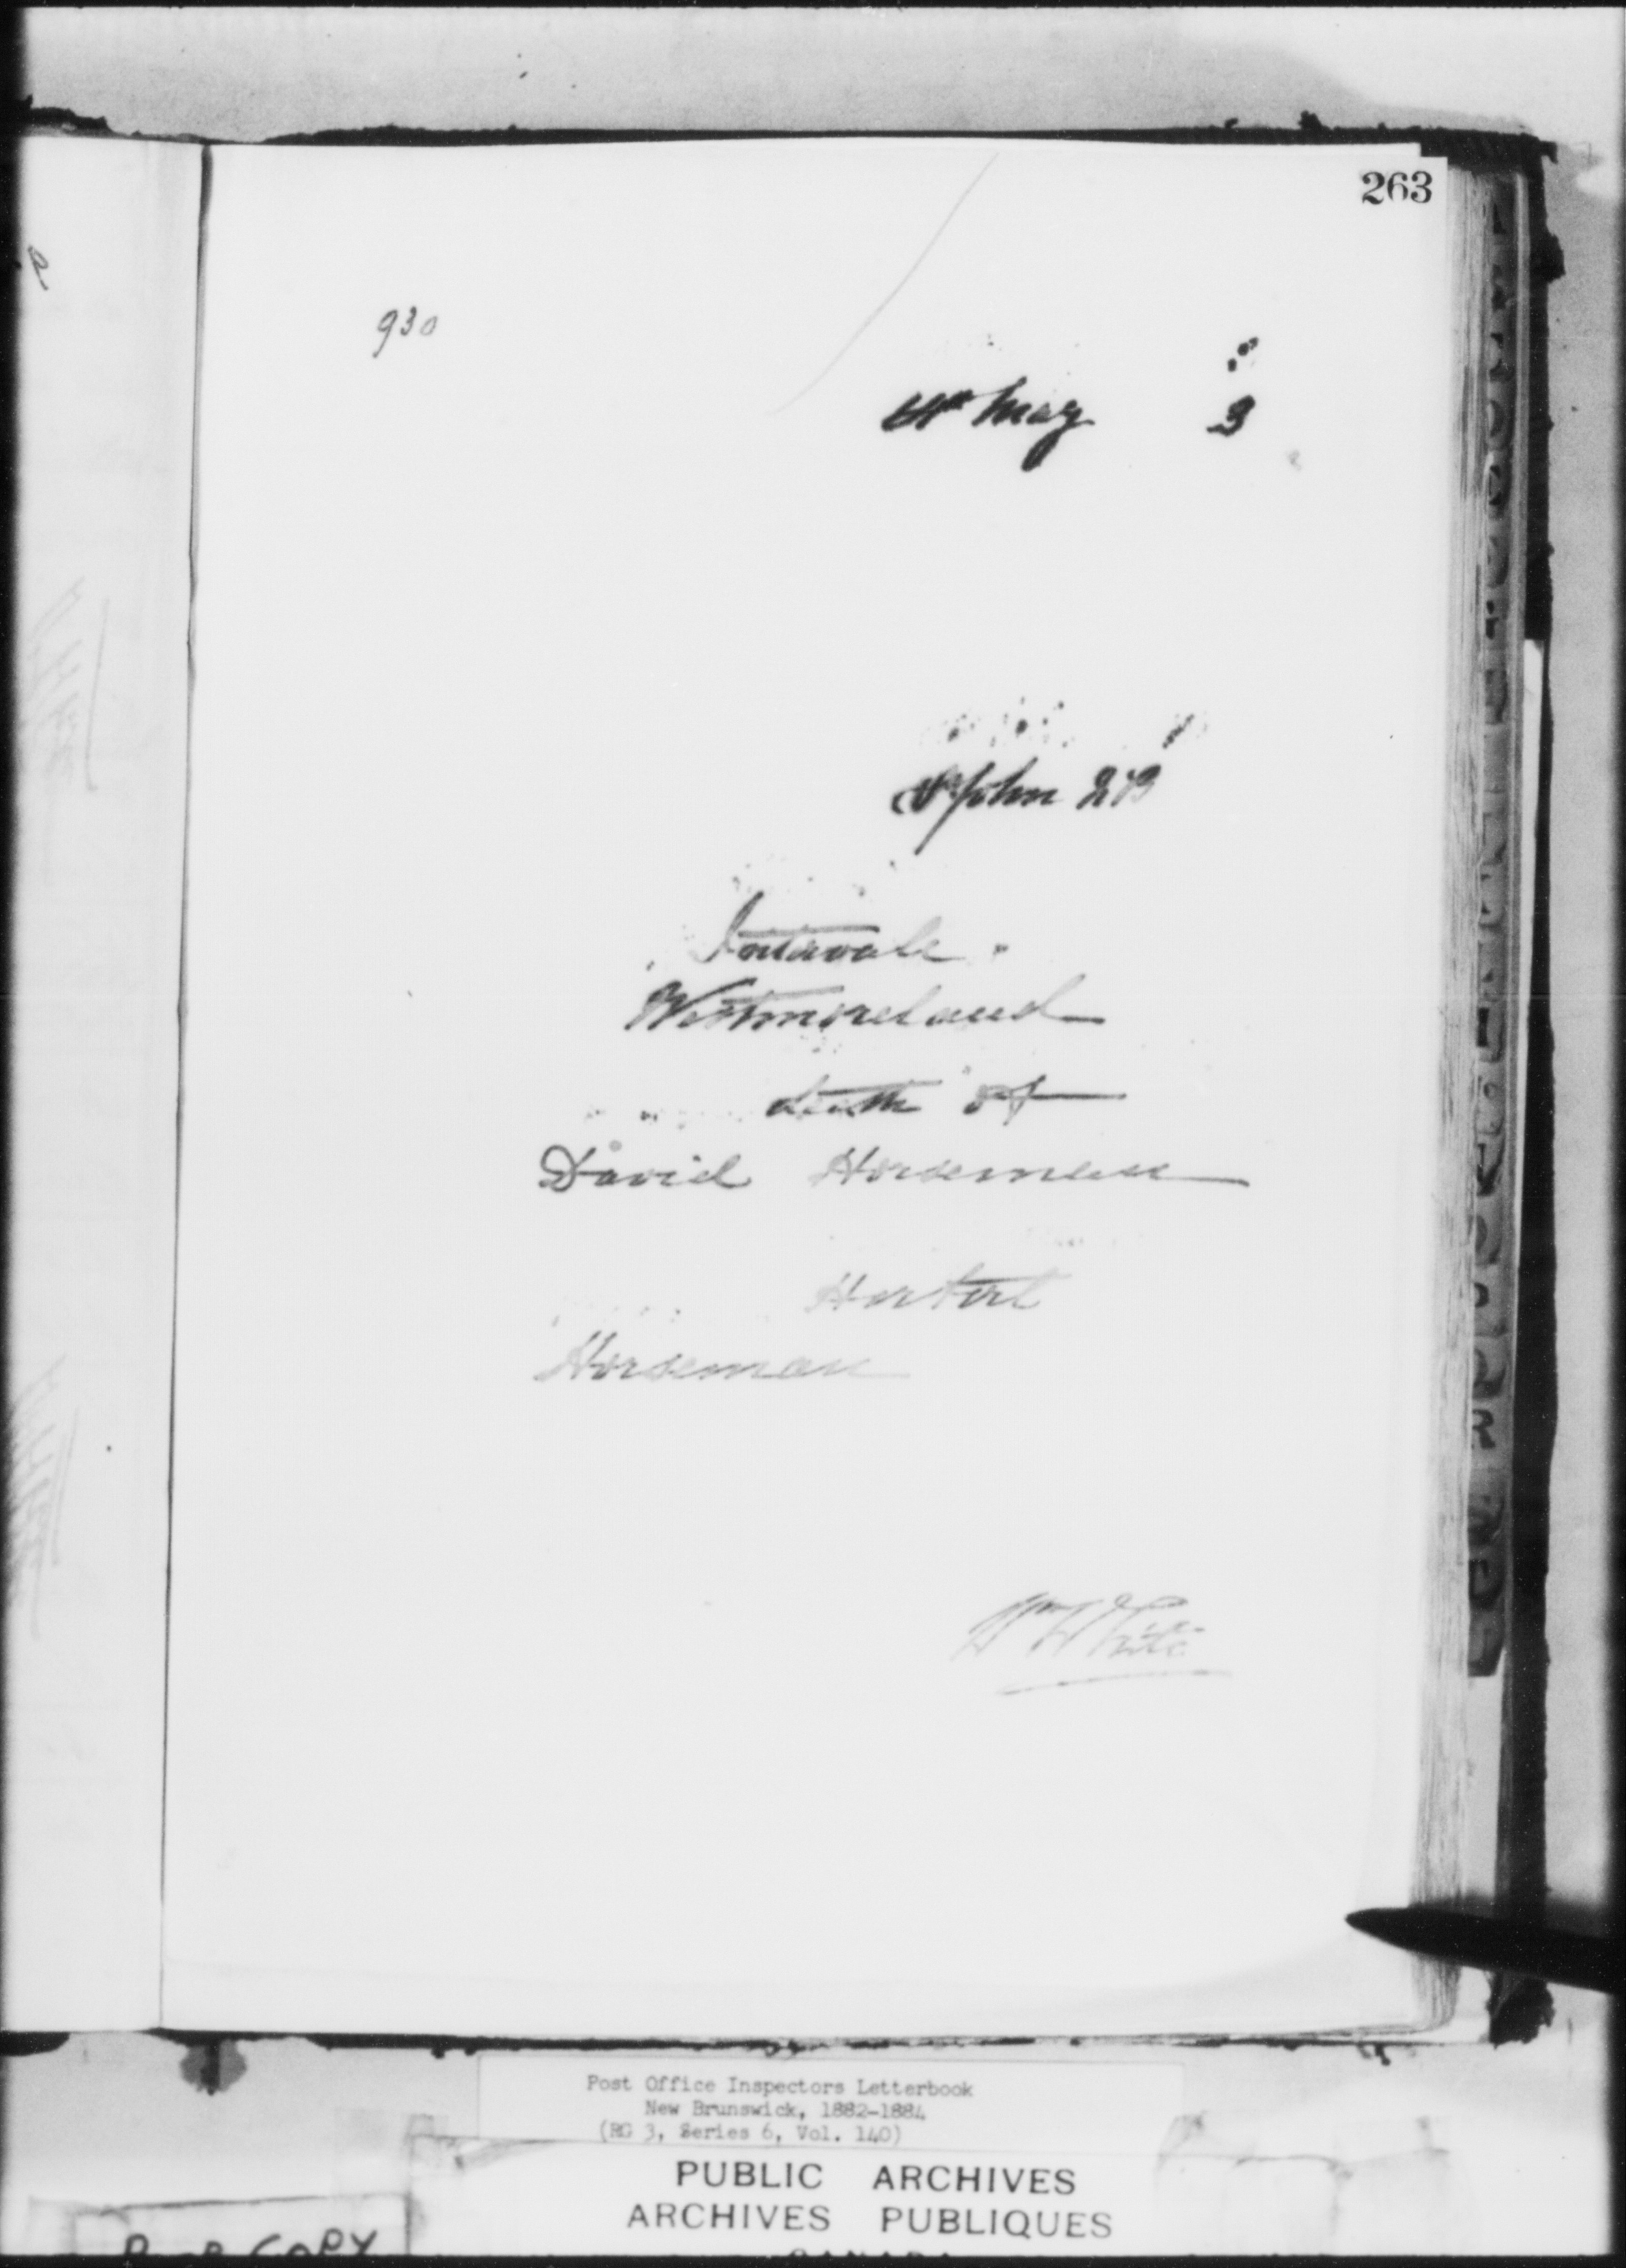 263
930
4th May 3
St John NB
Intervale
Westmoreland
death of
David Horseman
Horseman
W White
Post Office Inspectors Letterbook
New Brunswick, 1882-1884
(RG 3, Series 6, Vol. 140)
PUBLIC ARCHIVES
ARCHIVES PUBLIQUES
CANADA
COPY